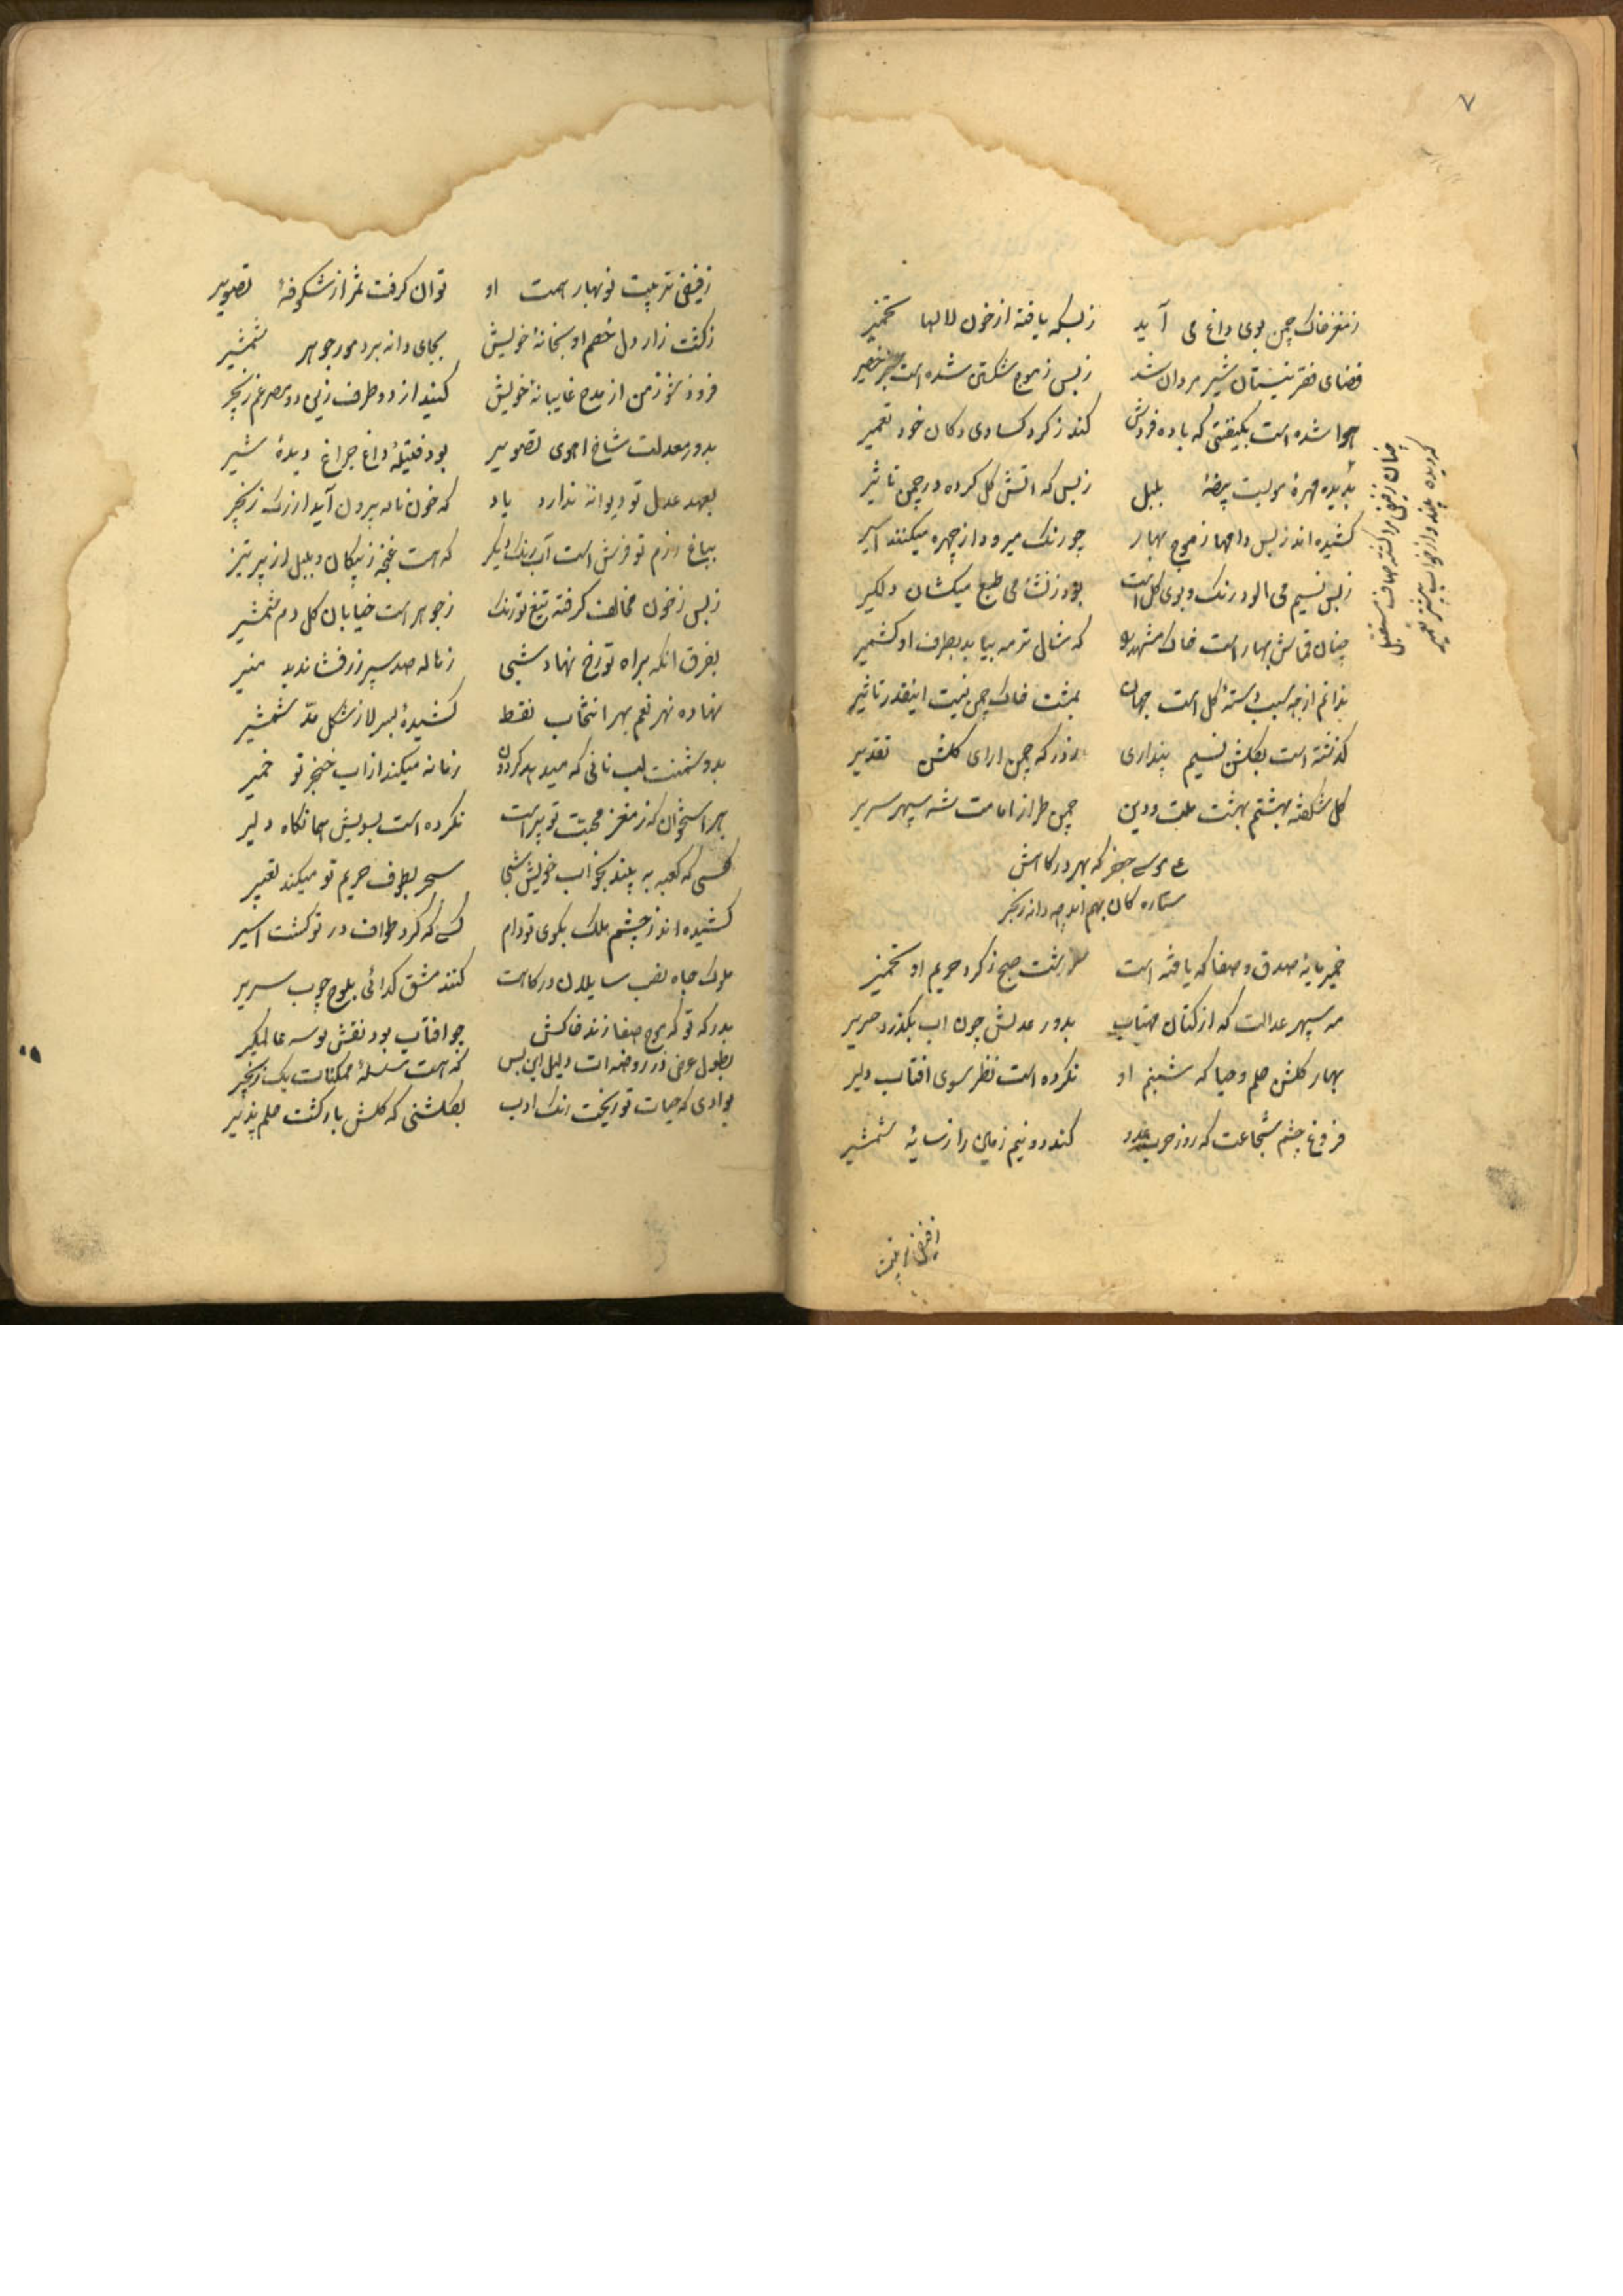 ۷
ز مغز خاک چمن بوی داغ می آید زبسکه یافته از خون لالها تخمیر
فضای فقر نیستان شیر مردان شد زبس ز موج شکستن شده است حصیر
هوا شده است بکیفیتی که باده فروش کند ز کرد کسادی دکان خود تعمیر
بدیده مهرهٔ بیضهٔ بلبل زبس که اتش کل کرده در چمن تاثیر
کشیده اند زبس دامها ز موج بهار چو رنک میرود از چهره میکنند اسیر
زبس نسیم می الود رنک و بوی کل است بود ز نشاٴ می طبع میکشان دلکیر
چنان قماش بهار است خاک مشهد را که شال ترمه بیاید بطرف او کشمیر
ندانم از چه سبب دستهٔ کل است جهان بمشت خاک چمن نیست اینقدر تاثیر
کذشته است بکلشن نسیم پنداری ز در که چمن ارای کلشن تقدیر
کل شکفته بهشتم بهشت ملت و دین چمن طراز امامت شه سپهر سریر
موسی جعفر که بهر در کاهش
ستاره کان بهم اید چه دانه زنجیر
خمیر مایهٔ صدق و صفا که یافته است سرشت صبح ز کرد حریم او تخمیر
مه سپهر عدالت که از کتان مهتاب بدور عدلش چون اب بکذرد حریر
بهار کلشن حلم و حیا که شبنم او نکرده است نظر سوی افتاب دلیر
فروغ چشم شجاعت که روز حرب عدو کند دو نیم زمین را ز سایهٔ شمشیر
چنان ز فیض صاف مستقبل
که دیده بیند و از خواب بیشتر تعبیر
ز فیض تربیت
ز فیض تربیت نوبهار همت او توان کرفت ثمر از شکوفهٔ تصویر
ز کشت زار دل خصم او بخانهٔ خویش بجای دانه برد مور جوهر شمشیر
فروز من از مدح غایبانهٔ خویش کنید از دو طرف زیب دو مصرعم زنجیر
بدور معدلت شاخ اهوی تصویر بود فتیلهٔ داغ چراغ دیدهٔ شیر
بعهد عدل تو دیوانه ندارد یاد که خون ناله برون آید از رک زنجیر
بباغ رزم تو فرش است آب رنک دیکر که هست غنچه ز پیکان و بلبل از پر تیر
زبس ز خون مخالف کرفته تیغ تو رنک ز جوهر است خیابان کل دم شمشیر
بفرق انکه براه تو رخ نهاد شبی ز ناله صد سپر زر فشاند بدر منیر
نهاده نهر نعم بهر انتخاب نقط کشیدهٔ بسر لا ز شکل مد شمشیر
بدوشمنت لب نانی که میدهد کردون زمانه میکند از اب خنجر تو خمیر
بهر استخوان که ز مغز محبت تو پر است نکرده است بسویش هما نکاه دلیر
کسی که کعبه به بیند بخواب خویش شبی سحر بطوف حریم تو میکند تعبیر
کشیده اند ز چشم ملک بکوی تو دام کسی که کرد طواف در تو کشت اسیر
ملوک جاه نصب سایلان درکاهت کنند مشق کدائی بلوح چوب سریر
بدرکه تو که موج صفا زند خاکش چو افتاب بود نقش بوسه عالمکیر
بطول عرض در روضه ات دلیل این بس که هست سلسلهٔ ممکنات یک زنجیر
بوادی که حیات تو ریخت رنک ادب بکلشنی که کلش بار کشت حلم پذیر